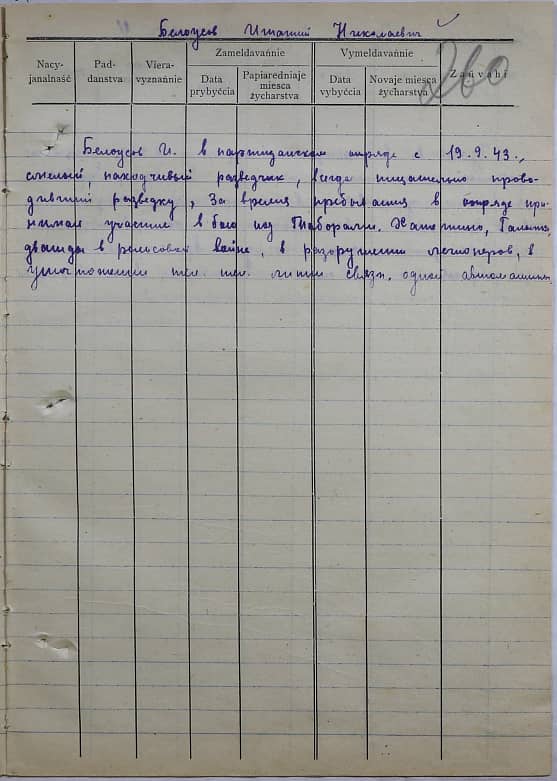 Белоусов Игнатий Николаевич
Nacy-
janalnaść
Pad-
danstva
Viera-
vyznańnie
Zameldavańnie
Data
prybyćcia
Papiaredniaje
miesca
žycharstva
Vymeldavańnie
Data
vybyćcia
Novaje miesca
žycharstva
Zaŭvahi
260
Белоусов И. в партизанском отряде с 19.9.43.,
смелый, находчивый разведчик, всегда тщательно прово-
дивший разведку, За время пребывания в отряде при-
нимал участие в бою под Таборами.
дважды в рельсовой войне, в разоружении легионеров, в
уничтожении тел. тел. линии связи. одной автомашины